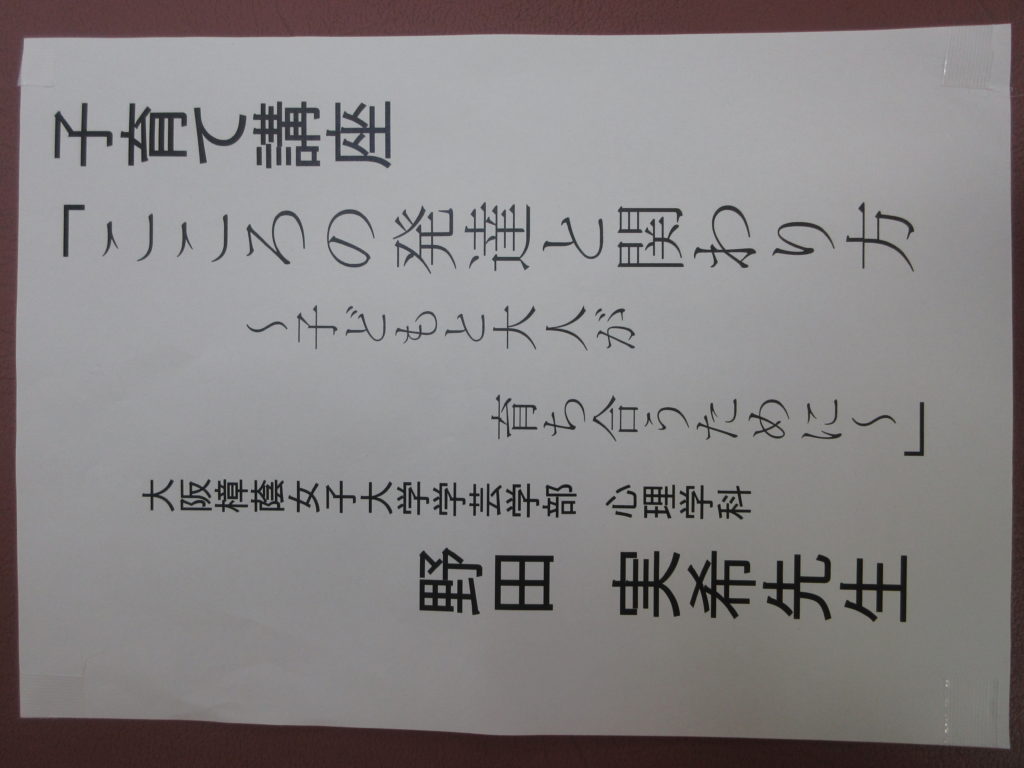 子育て講座
「こころの発達と関わり方
～子どもと大人が
育ち合うために～」
大阪樟蔭女子大学学芸学部　心理学科
野田　実希先生